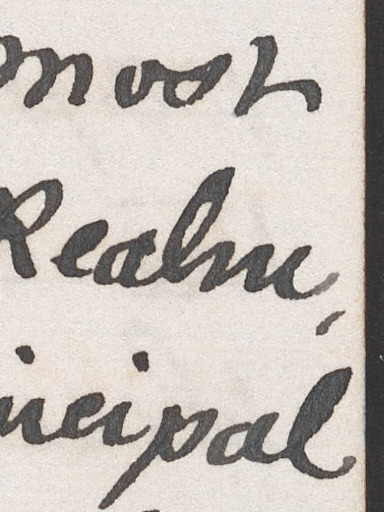 most
Realm,
incipal